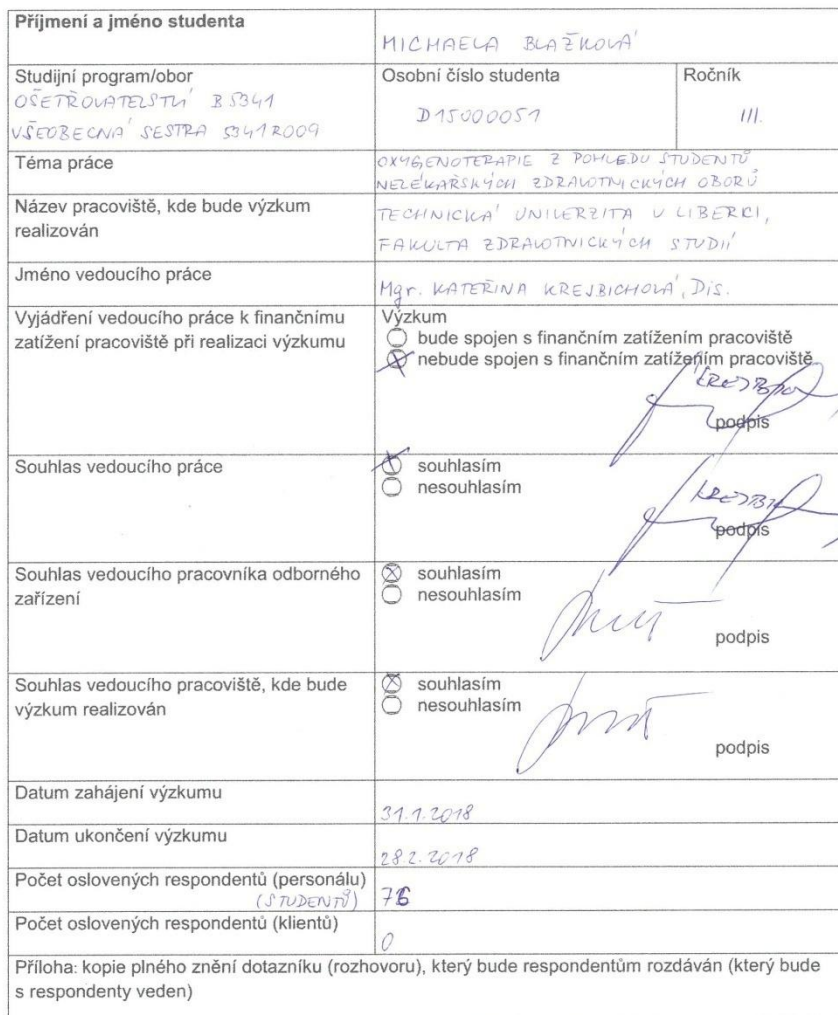 Příjmení a jméno studenta
MICHAELA BLAŽKOVÁ
Studijní program/obor
OŠETŘOVATELSTVÍ B5341
VŠEOBECNÁ SESTRA 5341R009
Osobní číslo studenta
D15000051
Ročník
III.
Téma práce
OXYGENOTERAPIE Z POHLEDU STUDENTŮ
NELÉKAŘSKÝCH ZDRAVOTNICKÝCH OBORŮ
Název pracoviště, kde bude výzkum
realizován
TECHNICKÁ UNIVERZITA V LIBERCI,
FAKULTA ZDRAVOTNICKÝCH STUDIÍ
Jméno vedoucího práce
Mgr. KATEŘINA KREJBICHOVÁ, Dis.
Vyjádření vedoucího práce k finančnímu
zatížení pracoviště při realizaci výzkumu
Výzkum
bude spojen s finančním zatížením pracoviště
nebude spojen s finančním zatížením pracoviště
podpis
Souhlas vedoucího práce
souhlasím
nesouhlasím
podpis
Souhlas vedoucího pracovníka odborného
zařízení
souhlasím
nesouhlasím
podpis
Souhlas vedoucího pracoviště, kde bude
výzkum realizován
souhlasím
nesouhlasím
podpis
Datum zahájení výzkumu
31.1.2018
Datum ukončení výzkumu
28.2.2018
Počet oslovených respondentů (personálu)
(STUDENTŮ)
Počet oslovených respondentů (klientů)
0
Příloha: kopie plného znění dotazníku (rozhovoru), který bude respondentům rozdáván (který bude
s respondenty veden)